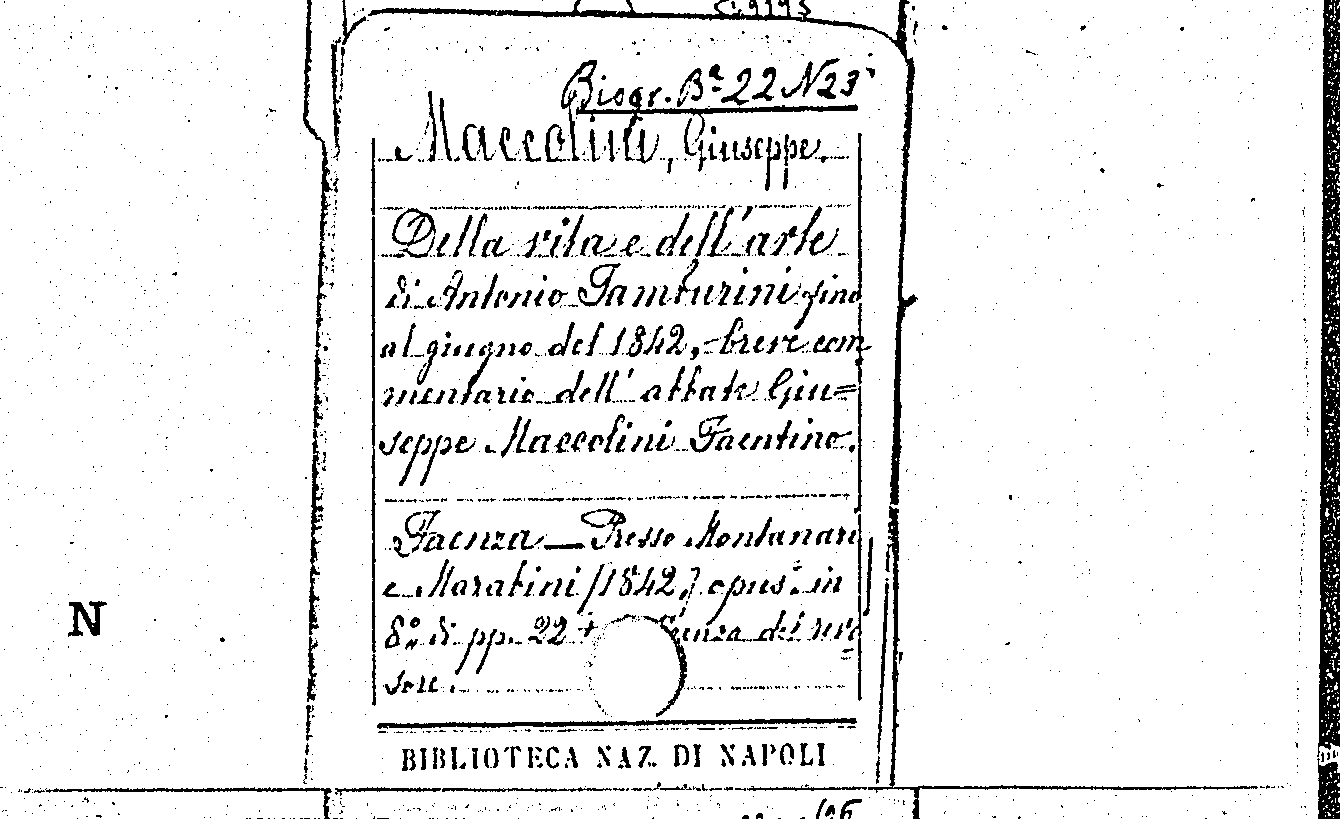 Biogr. Bª 22 N 23
Maccolini, Giuseppe.
Della vita e dell'arte
di Antonio Tamburini fino
al giugno del 1842, breve com
mentario dell'abbate Giu=
seppe Maccolini Faentino.
Faenza — Presso Montanari
e Marabini [1842] opusº in
8º di pp. 22 + del revi
sore.
N
BIBLIOTECA NAZ. DI NAPOLI